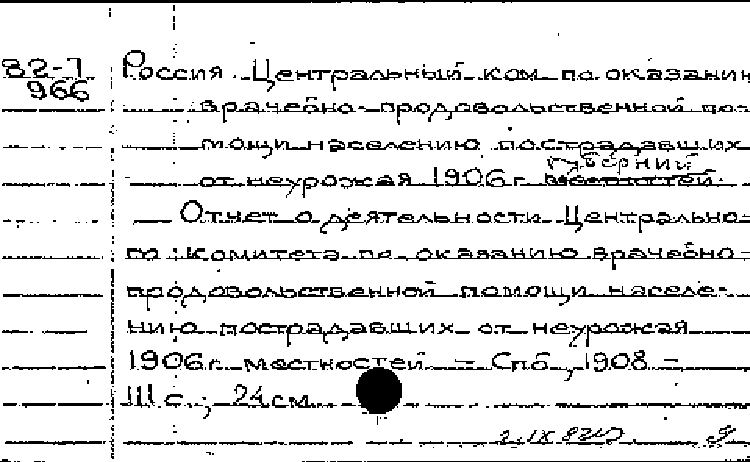 82-7 Россия. Центральный ком. по оказанию
966
врачебно-продовольственной по-
мощи населению пострадавших
губерний
от неурожая 1906 г. местностей.
— Отчет о деятельности Центрально-
го Комитета по оказанию врачебно-
продовольственной помощи населе-
нию пострадавших от неурожая
1906 г. местностей. – Спб., 1908 –
111 с.; 24 см.